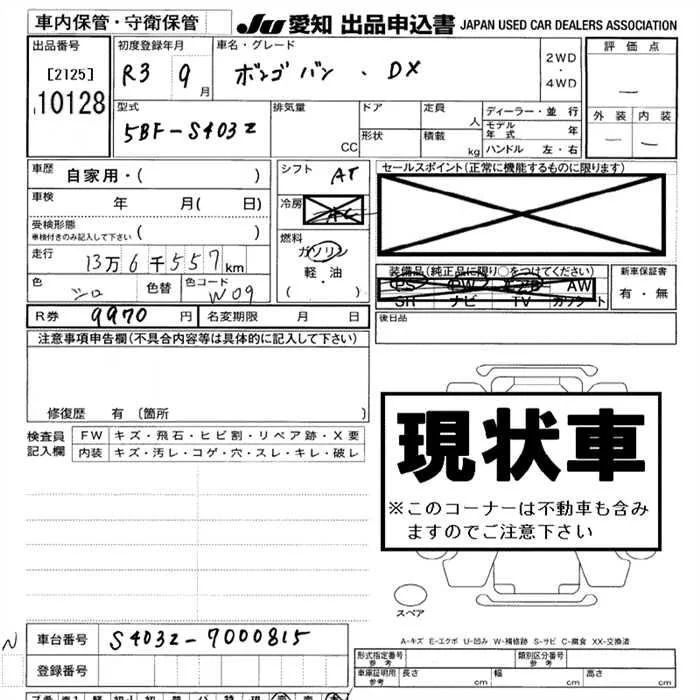 車内保管・守衛保管
JU 愛知 出品申込書 JAPAN USED CAR DEALERS ASSOCIATION
出品番号
[2125]
10128
初度登録年月
R3 9月
車名・グレード
ボンゴ バン . DX
2WD
・
4WD
評価点
—
外装 内装
— —
型式
5BF-S403Z
排気量
CC
ドア
形状
定員
人
積載
kg
ディーラー・並行
モデル年式 年
ハンドル 左・右
車歴 自家用・( )
車検 年 月( 日)
受検形態
車検付きのみ記入して下さい ( )
走行 13万6千557km
色 シロ 色替 色コード W09
シフト AT
冷房 AC
燃料
ガソリン
軽・油
( ・ )
セールスポイント(正常に機能するものに限ります)
装備品(純正品に限り○をつけてください)
PS PW エアB AW
SR ナビ TV カセット
新車保証書
有・無
R券 9970 円 名変期限 月 日
後日品
注意事項申告欄(不具合内容等は具体的に記入して下さい)
修復歴 有〔箇所 〕
検査員記入欄
FW キズ・飛石・ヒビ割・リペア跡・X要
内装 キズ・汚レ・コゲ・穴・スレ・キレ・破レ
現状車
※このコーナーは不動車も含み
ますのでご注意下さい
スペア
A-キズ E-エクボ U-凹み W-補修跡 S-サビ C-腐食 XX-交換済
N
車台番号 S403Z-7000815
登録番号
形式指定番号
参考
類別区分番号
参考
車庫証明用
参考
長さ cm 幅 cm 高さ cm